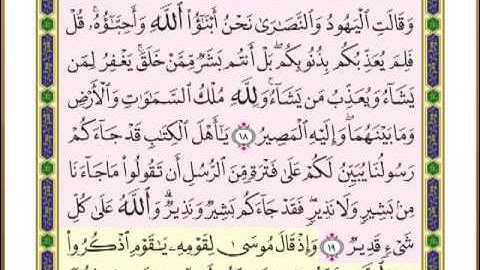 وَقَالَتِ ٱلْيَهُودُ وَٱلنَّصَٰرَىٰ نَحْنُ أَبْنَٰٓؤُا۟ ٱللَّهِ وَأَحِبَّٰٓؤُهُۥ ۚ قُلْ
فَلِمَ يُعَذِّبُكُم بِذُنُوبِكُم ۖ بَلْ أَنتُم بَشَرٌ مِّمَّنْ خَلَقَ ۚ يَغْفِرُ لِمَن
يَشَآءُ وَيُعَذِّبُ مَن يَشَآءُ ۚ وَلِلَّهِ مُلْكُ ٱلسَّمَٰوَٰتِ وَٱلْأَرْضِ
وَمَا بَيْنَهُمَا ۖ وَإِلَيْهِ ٱلْمَصِيرُ ١٨ يَٰٓأَهْلَ ٱلْكِتَٰبِ قَدْ جَآءَكُمْ
رَسُولُنَا يُبَيِّنُ لَكُمْ عَلَىٰ فَتْرَةٍ مِّنَ ٱلرُّسُلِ أَن تَقُولُوا۟ مَا جَآءَنَا
مِنۢ بَشِيرٍ وَلَا نَذِيرٍ ۖ فَقَدْ جَآءَكُم بَشِيرٌ وَنَذِيرٌ ۗ وَٱللَّهُ عَلَىٰ كُلِّ
شَىْءٍ قَدِيرٌ ١٩ وَإِذْ قَالَ مُوسَىٰ لِقَوْمِهِۦ يَٰقَوْمِ ٱذْكُرُوا۟